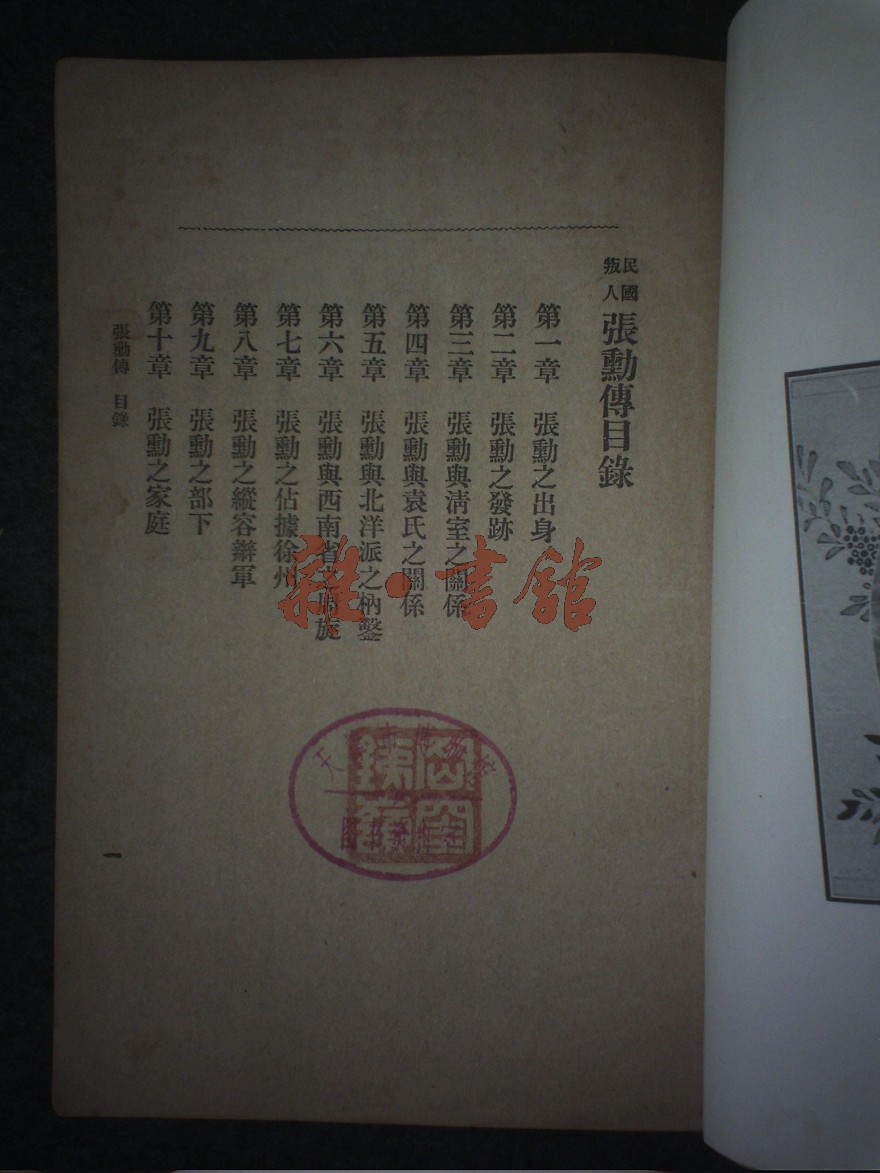 民國叛人 張勳傳目錄
第一章 張勳之出身
第二章 張勳之發跡
第三章 張勳與淸室之關係
第四章 張勳與袁氏之關係
第五章 張勳與北洋派之枘鑿
第六章 張勳與西南省之周旋
第七章 張勳之佔據徐州
第八章 張勳之縱容辮軍
第九章 張勳之部下
第十章 張勳之家庭
張勳傳 目錄
一
雜·書館